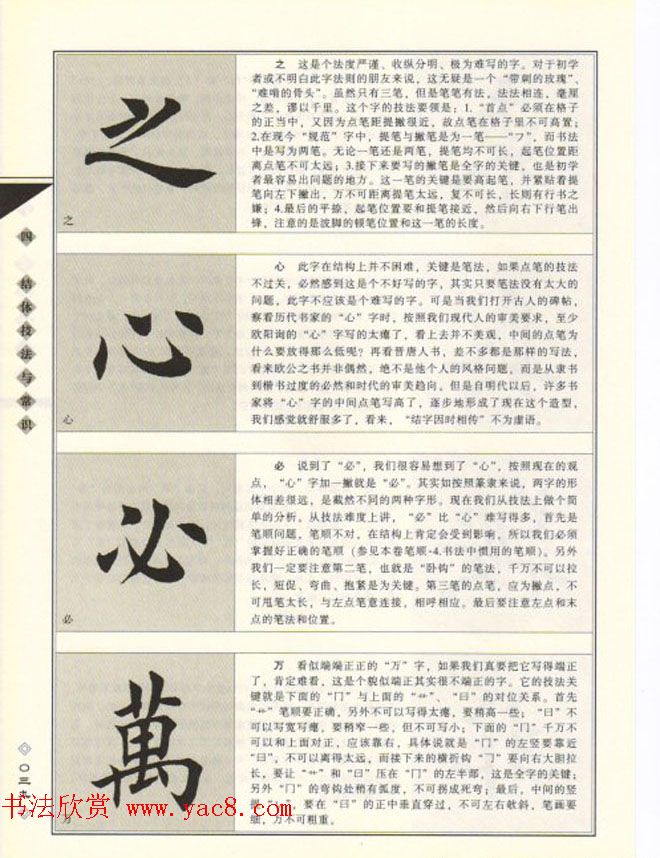 四
结体技法与常识
之 这是个法度严谨、收纵分明、极为难写的字。对于初学
者或不明白此字法则的朋友来说，这无疑是一个“带刺的玫瑰”、
“难啃的骨头”。虽然只有三笔，但是笔笔有法，法法相连，毫厘
之差，谬以千里。这个字的技法要领是：1.“首点”必须在格子
的正当中，又因为点笔距提撇很近，故点笔在格子里不可高置；
2.在现今“规范”字中，提笔与撇笔是为一笔——“フ”，而书法
中是写为两笔。无论一笔还是两笔，提笔均不可长，起笔位置距
离点笔不可太远；3.接下来要写的撇笔是全字的关键，也是初学
者最容易出问题的地方。这一笔的关键是要高起笔，并紧贴着提
笔向左下撇出，万不可距离提笔太远，复不可长，长则有行书之
嫌；4.最后的平捺，起笔位置要和提笔接近，然后向右下行笔出
锋，注意的是波脚的顿笔位置和这一笔的长度。
之
之
心 此字在结构上并不困难，关键是笔法，如果点笔的技法
不过关，必然感到这是个不好写的字，其实只要笔法没有太大的
问题，此字不应该是个难写的字。可是当我们打开古人的碑帖，
察看历代书家的“心”字时，按照我们现代人的审美要求，至少
欧阳询的“心”字写的太瘪了，看上去并不美观，中间的点笔为
什么要放得那么低呢？再看晋唐人书，差不多都是那样的写法，
看来欧公之书并非偶然，绝不是他个人的风格问题，而是从隶书
到楷书过度的必然和时代的审美趋向。但是自明代以后，许多书
家将“心”字的中间点笔写高了，逐步地形成了现在这个造型，
我们感觉就舒服多了，看来，“结字因时相传”不为虚语。
心
心
必 说到了“必”，我们很容易想到了“心”，按照现在的观
点，“心”字加一撇就是“必”。其实如按照篆隶来说，两字的形
体相差很远，是截然不同的两种字形。现在我们从技法上做个简
单的分析。从技法难度上讲，“必”比“心”难写得多，首先是
笔顺问题，笔顺不对，在结构上肯定会受到影响，所以我们必须
掌握好正确的笔顺（参见本卷笔顺·4.书法中惯用的笔顺）。另外
我们一定要注意第二笔，也就是“卧钩”的笔法，千万不可以拉
长，短促、弯曲、抱紧是为关键。第三笔的点笔，应为撇点，不
可甩笔太长，与左点笔意连接，相呼相应。最后要注意左点和末
点的笔法和位置。
必
必
万 看似端端正正的“万”字，如果我们真要把它写得端正
了，肯定难看，这是个貌似端正其实很不端正的字。它的技法关
键就是下面的“冂”与上面的“艹”、“曰”的对位关系。首先
“艹”笔顺要正确，另外不可以写得太瘪，要稍高一些；“曰”不
可以写宽写瘪，要稍窄一些，但不可写小；下面的“冂”千万不
可以和上面对正，应该靠右，具体说就是“冂”的左竖要靠近
“曰”，不可以离得太远，而接下来的横折钩“㇆”要向右大胆拉
长，要让“艹”和“曰”压在“冂”的左半部，这是全字的关键；
另外“冂”的弯钩处稍有弧度，不可拐成死弯；最后，中间的竖
要在“曰”的正中垂直穿过，不可左右欹斜，笔画要
细，万不可粗重。
萬
万
书法欣赏 www.yac8.com